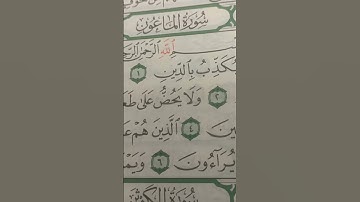 سُورَةُ الْمَاعُونِ
اللَّهِ الرَّحْمَٰنِ
يُكَذِّبُ بِالدِّينِ ١
٢ وَلَا يَحُضُّ عَلَىٰ
٤ الَّذِينَ هُمْ
يُرَاءُونَ ٦
سُورَةُ الْكَوْثَرِ